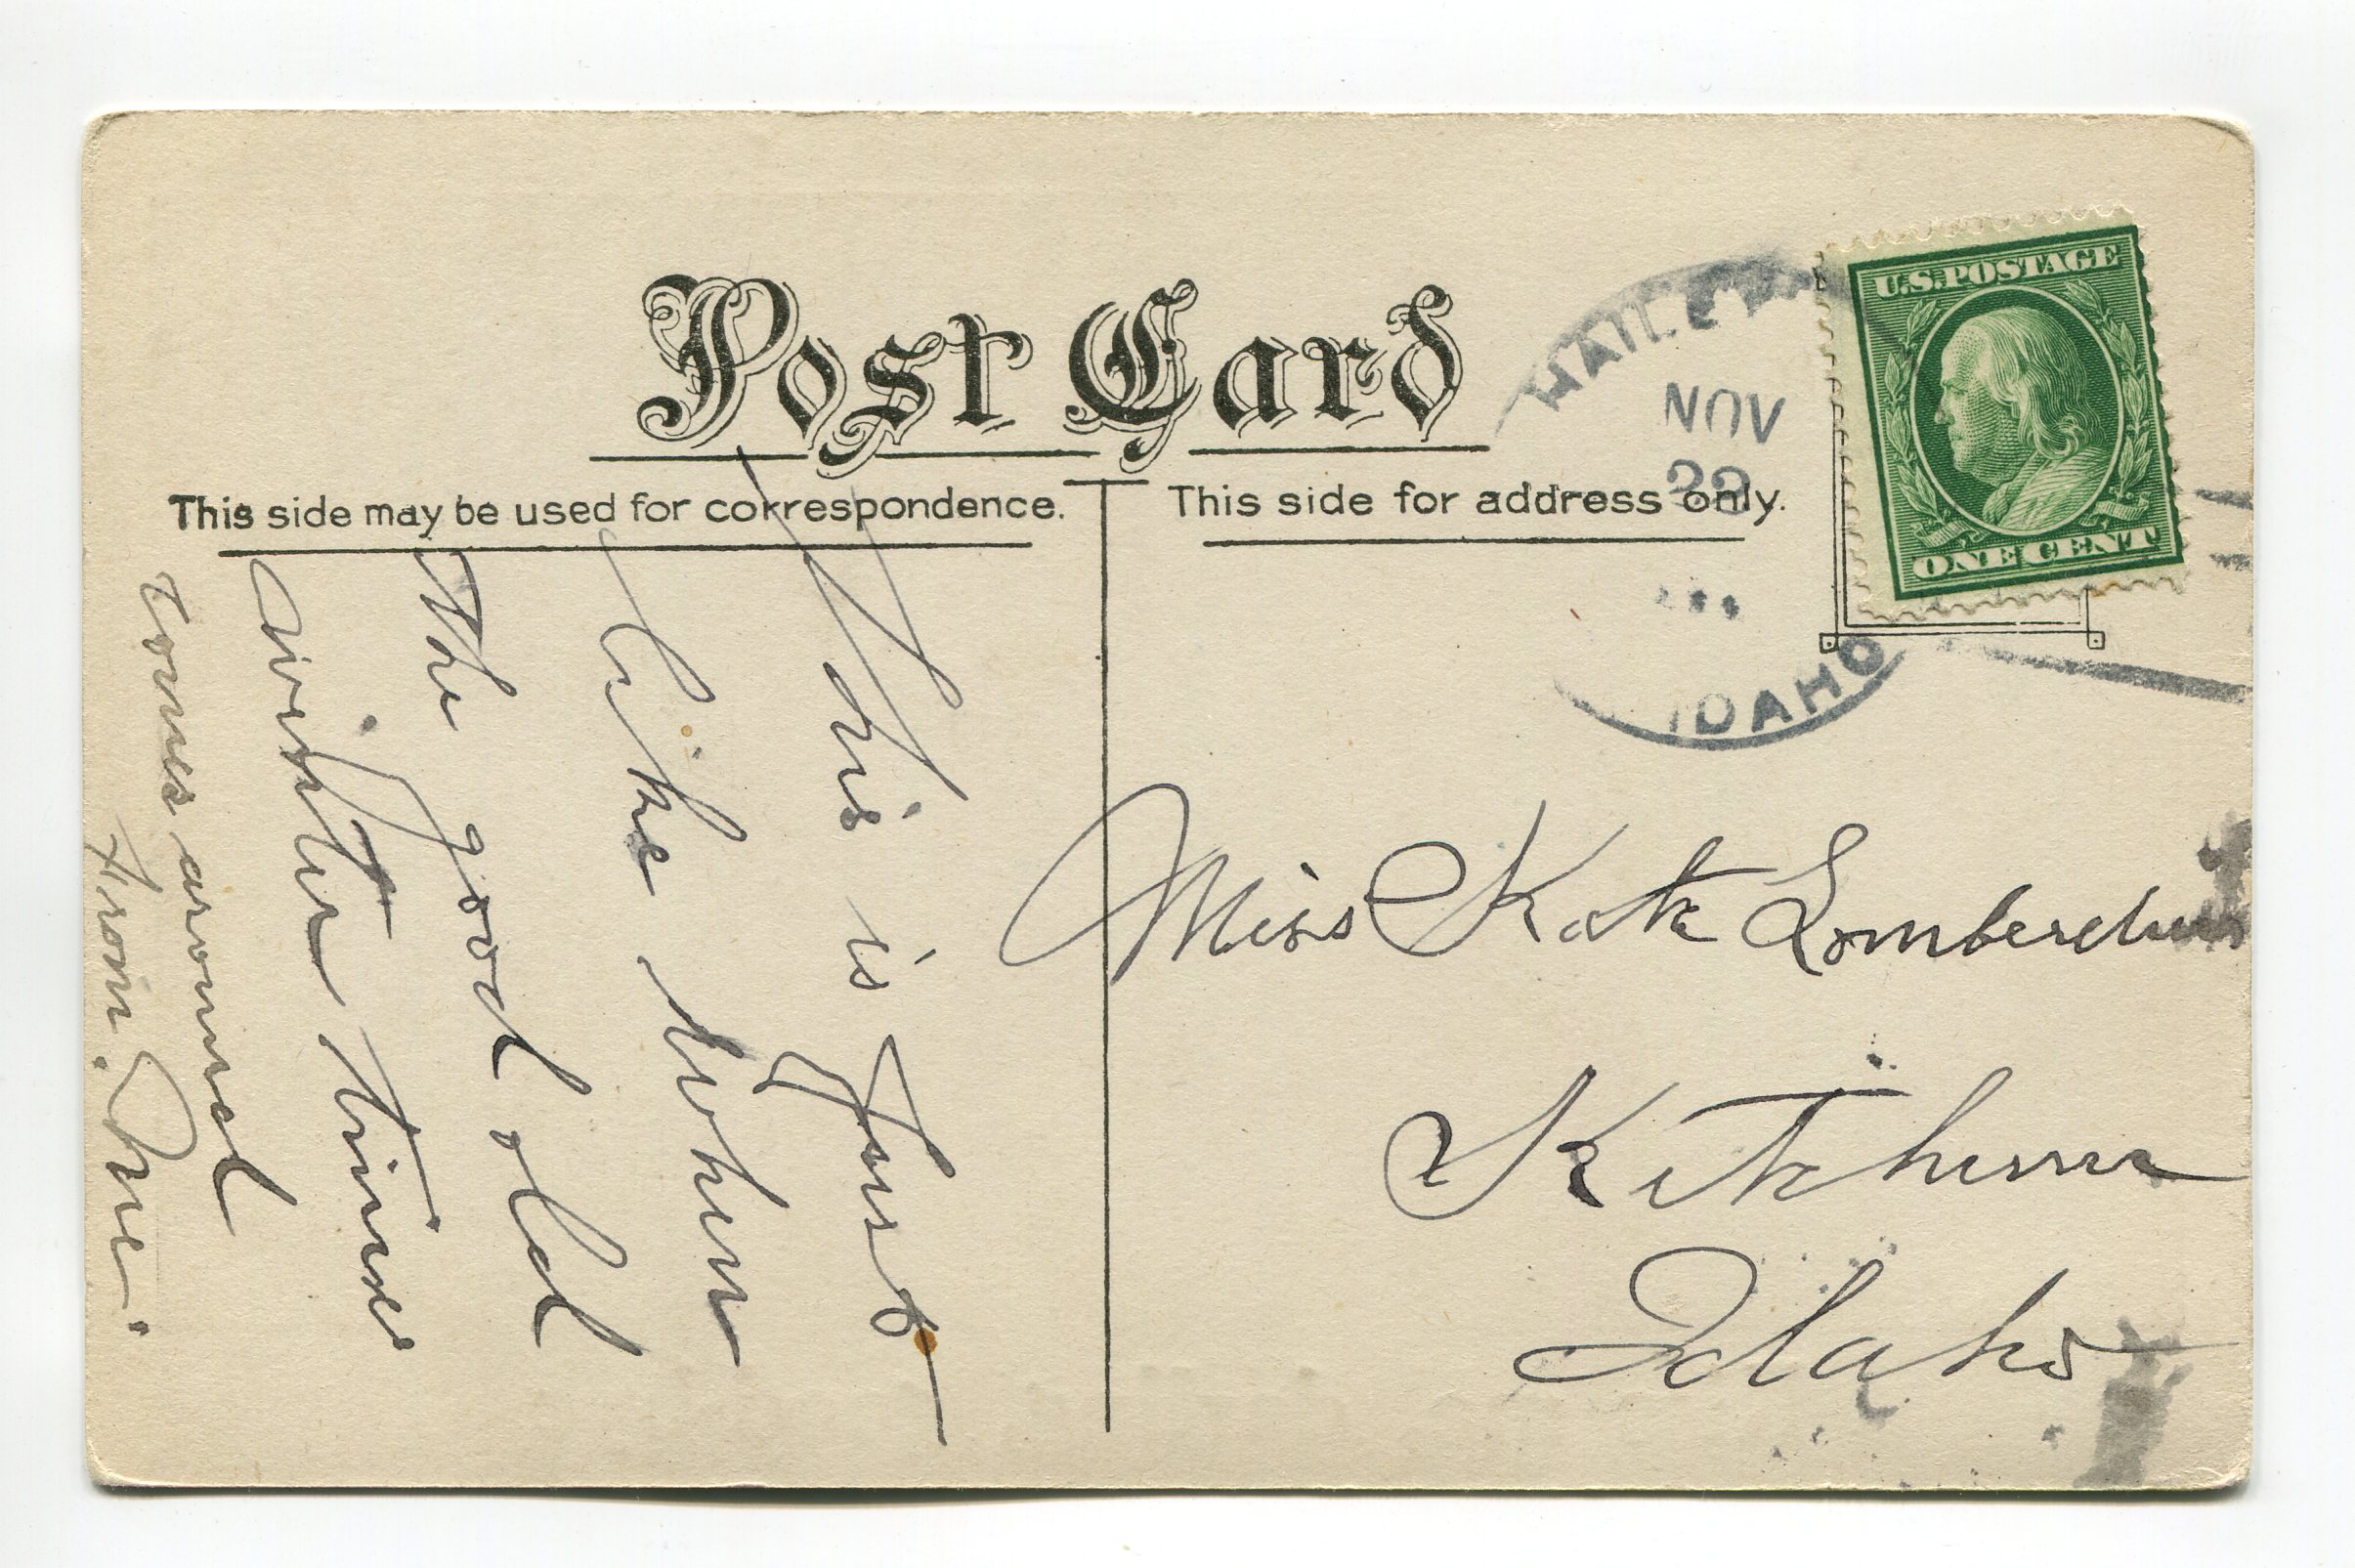 Post Card
This side may be used for correspondence.
This side for address only.
HAILEY
NOV
22
IDAHO
U.S. POSTAGE
ONE CENT
This is Just
like when
the good old
winter times
comes around
From. Me.
Miss Kate
Ketchum
Idaho